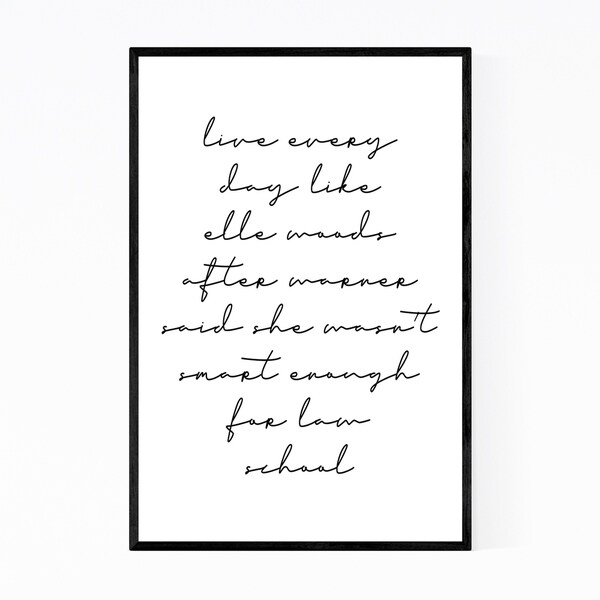 live every
day like
elle woods
after warner
said she wasn't
smart enough
for law
school